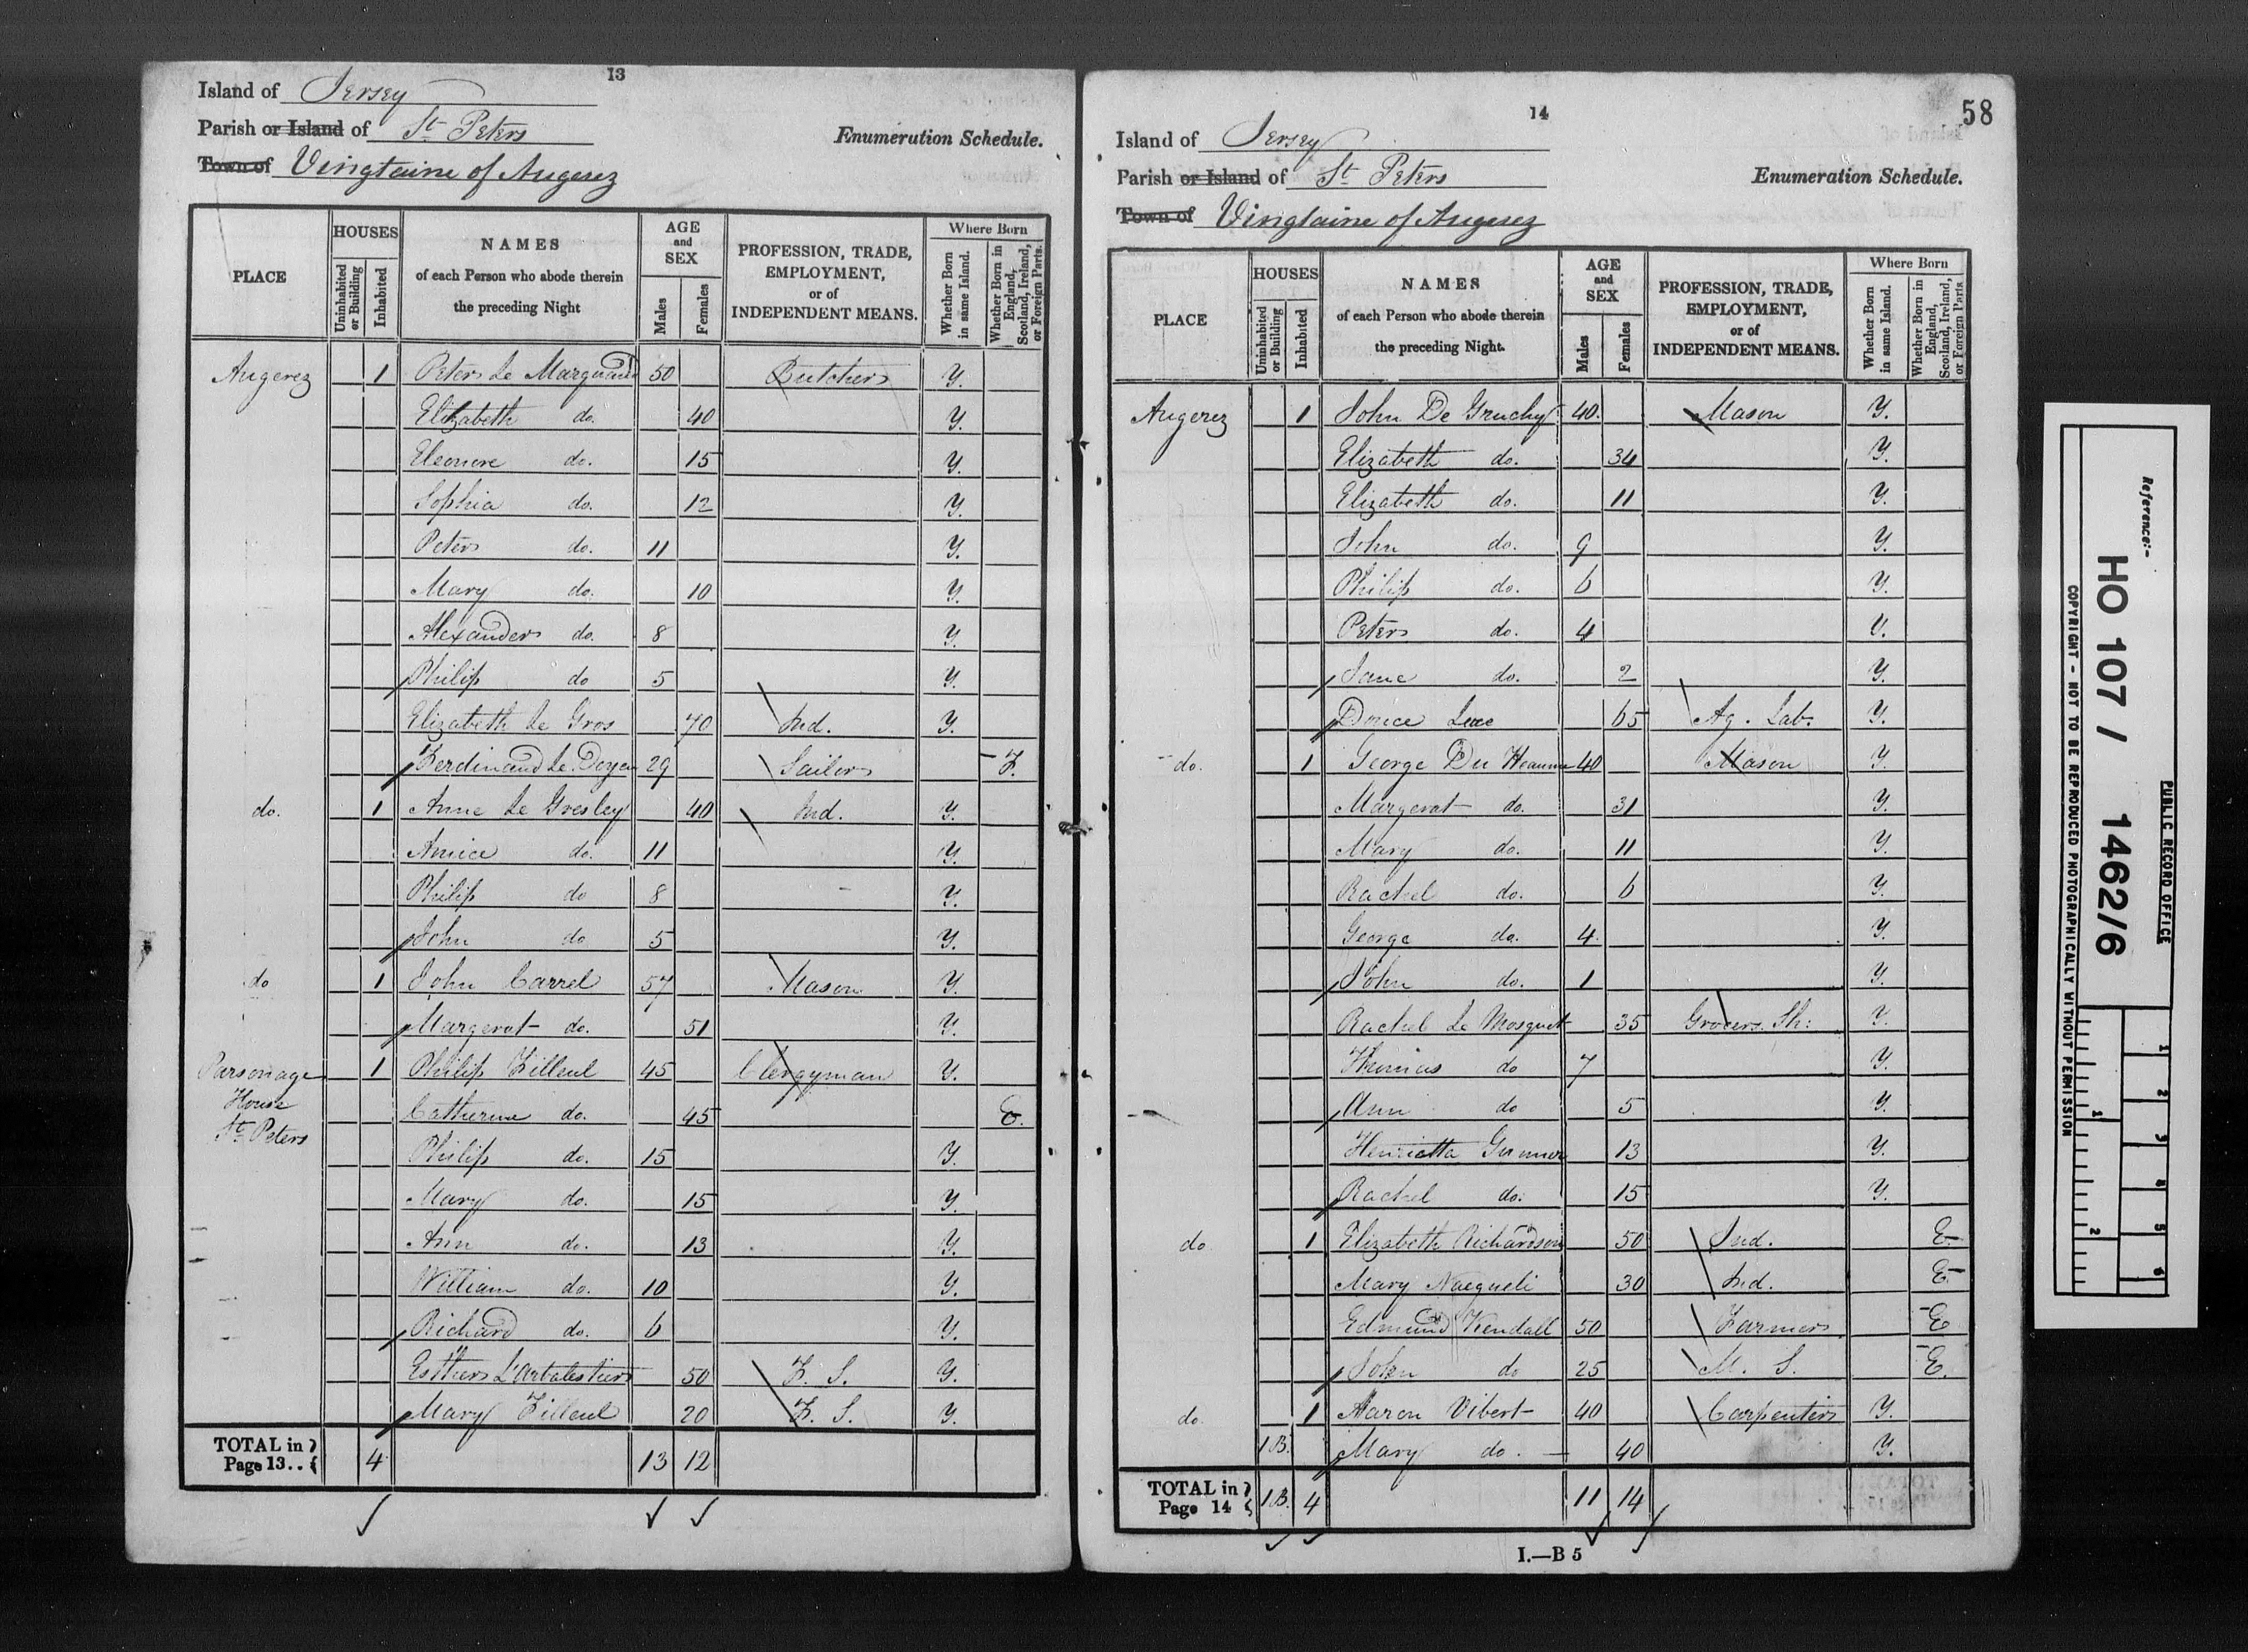 13
Island of Jersey
Parish or Island of St Peters
Enumeration Schedule.
Town of Vingtaine of Augerez
PLACE
HOUSES
Uninhabited or Building
Inhabited
NAMES
of each Person who abode therein
the preceding Night
AGE
and
SEX
Males
Females
PROFESSION, TRADE,
EMPLOYMENT,
or of
INDEPENDENT MEANS.
Where Born
Whether Born in same Island.
Whether Born in England, Scotland, Ireland, or Foreign Parts.
Augerez 1 Peter Le Marquand 50 Butcher Y.
Elizabeth do. 40 Y.
Eleonore do. 15 Y.
Sophia do. 12 Y.
Peter do. 11 Y.
Mary do. 10 Y.
Alexander do. 8 Y.
Philip do 5 Y.
Elizabeth Le Gros 70 Ind. Y.
Ferdinand Le Doyen 29 Sailor F.
do. 1 Anne Le Gresley 40 Ind. Y.
Amice do. 11 Y.
Philip do 8 Y.
John do 5 Y.
do 1 John Carrel 57 Mason Y.
Margeret do. 51 Y.
Parsonage House St Peters 1 Philip Filleul 45 Clergyman Y.
Catherine do. 45 E.
Philip do. 15 Y.
Mary do. 15 Y.
Ann do. 13 Y.
William do. 10 Y.
Richard do. 6 Y.
Esther L'Arbalestier 50 F. S. Y.
Mary Filleul 20 F. S. Y.
TOTAL in Page 13.. 4 13 12
14
58
Island of Jersey
Parish or Island of St Peters
Enumeration Schedule.
Town of Vingtaine of Augerez
PLACE
HOUSES
Uninhabited or Building
Inhabited
NAMES
of each Person who abode therein
the preceding Night.
AGE
and
SEX
Males
Females
PROFESSION, TRADE,
EMPLOYMENT,
or of
INDEPENDENT MEANS.
Where Born
Whether Born in same Island.
Whether Born in England, Scotland, Ireland, or Foreign Parts
Augerez 1 John De Gruchy 40. Mason Y.
Elizabeth do. 34 Y.
Elizabeth do. 11 Y.
John do. 9 Y.
Philip do. 6 Y.
Peter do. 4 Y.
Jane do. 2 Y.
Douce Luce 65 Ag. Lab. Y.
do. 1 George Du Heaume 40 Mason Y.
Margeret do. 31 Y.
Mary do. 11 Y.
Rachel do. 6 Y.
George do. 4 Y.
John do. 1 Y.
Rachel Le Mosquet 35 Grocer Sh: Y.
Thomas do 7 Y.
Ann do 5 Y.
Henrietta 13 Y.
Rachel do: 15 Y.
do 1 Elizabeth Richardson 50 Ind. E.
Mary Naegueli 30 Ind. E.
Edmund Kendall 50 Farmer E
John do 25 M. S. E.
do. 1 Aaron Vibert 40 Carpenter Y.
1B. Mary do. 40 Y.
TOTAL in Page 14 1B. 4 11 14
I.—B 5
Reference:-
HO 107 / 1462/6
PUBLIC RECORD OFFICE
COPYRIGHT - NOT TO BE REPRODUCED PHOTOGRAPHICALLY WITHOUT PERMISSION
1 2 3 4 5 6
1 2